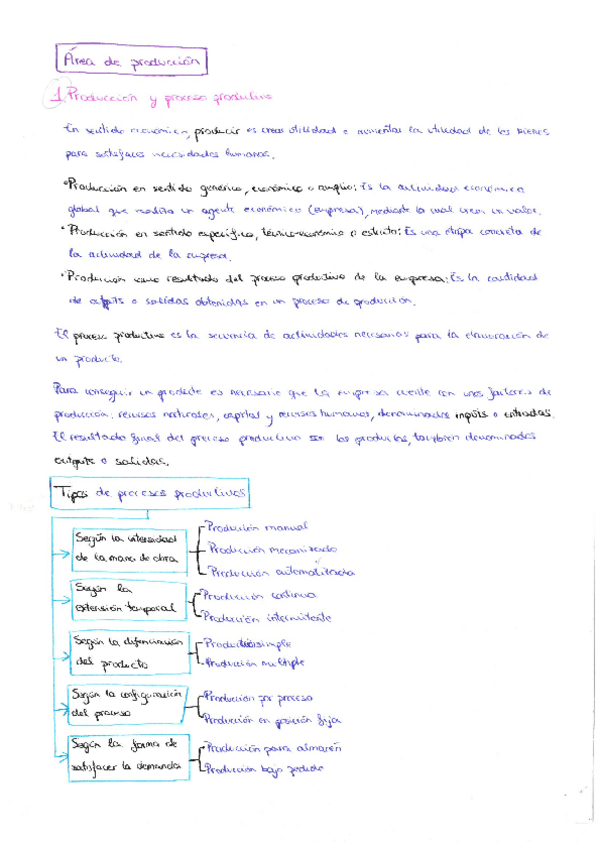 Área de producción
1. Producción y proceso productivo
En sentido económico, producir es crear utilidad o aumentar la utilidad de los bienes
para satisfacer necesidades humanas.
• Producción en sentido genérico, económico o amplio: Es la actividad económica
global que realiza un agente económico (empresa), mediante la cual crea un valor.
• Producción en sentido específico, técnico-económico o estricto: Es una etapa concreta de
la actividad de la empresa.
• Producción como resultado del proceso productivo de la empresa: Es la cantidad
de outputs o salidas obtenidas en un proceso de producción.
El proceso productivo es la secuencia de actividades necesarias para la elaboración de
un producto.
Para conseguir un producto es necesario que la empresa cuente con unos factores de
producción: recursos naturales, capital y recursos humanos, denominados inputs o entradas.
El resultado final del proceso productivo son los productos, también denominados
outputs o salidas.
Tipos de procesos productivos
Según la intensidad
de la mano de obra
Producción manual
Producción mecanizada
Producción automatizada
Según la
extensión temporal
Producción continua
Producción intermitente
Según la diferenciación
del producto
Producción simple
Producción múltiple
Según la configuración
del proceso
Producción por proceso
Producción en posición fija
Según la forma de
satisfacer la demanda
Producción para almacén
Producción bajo pedido